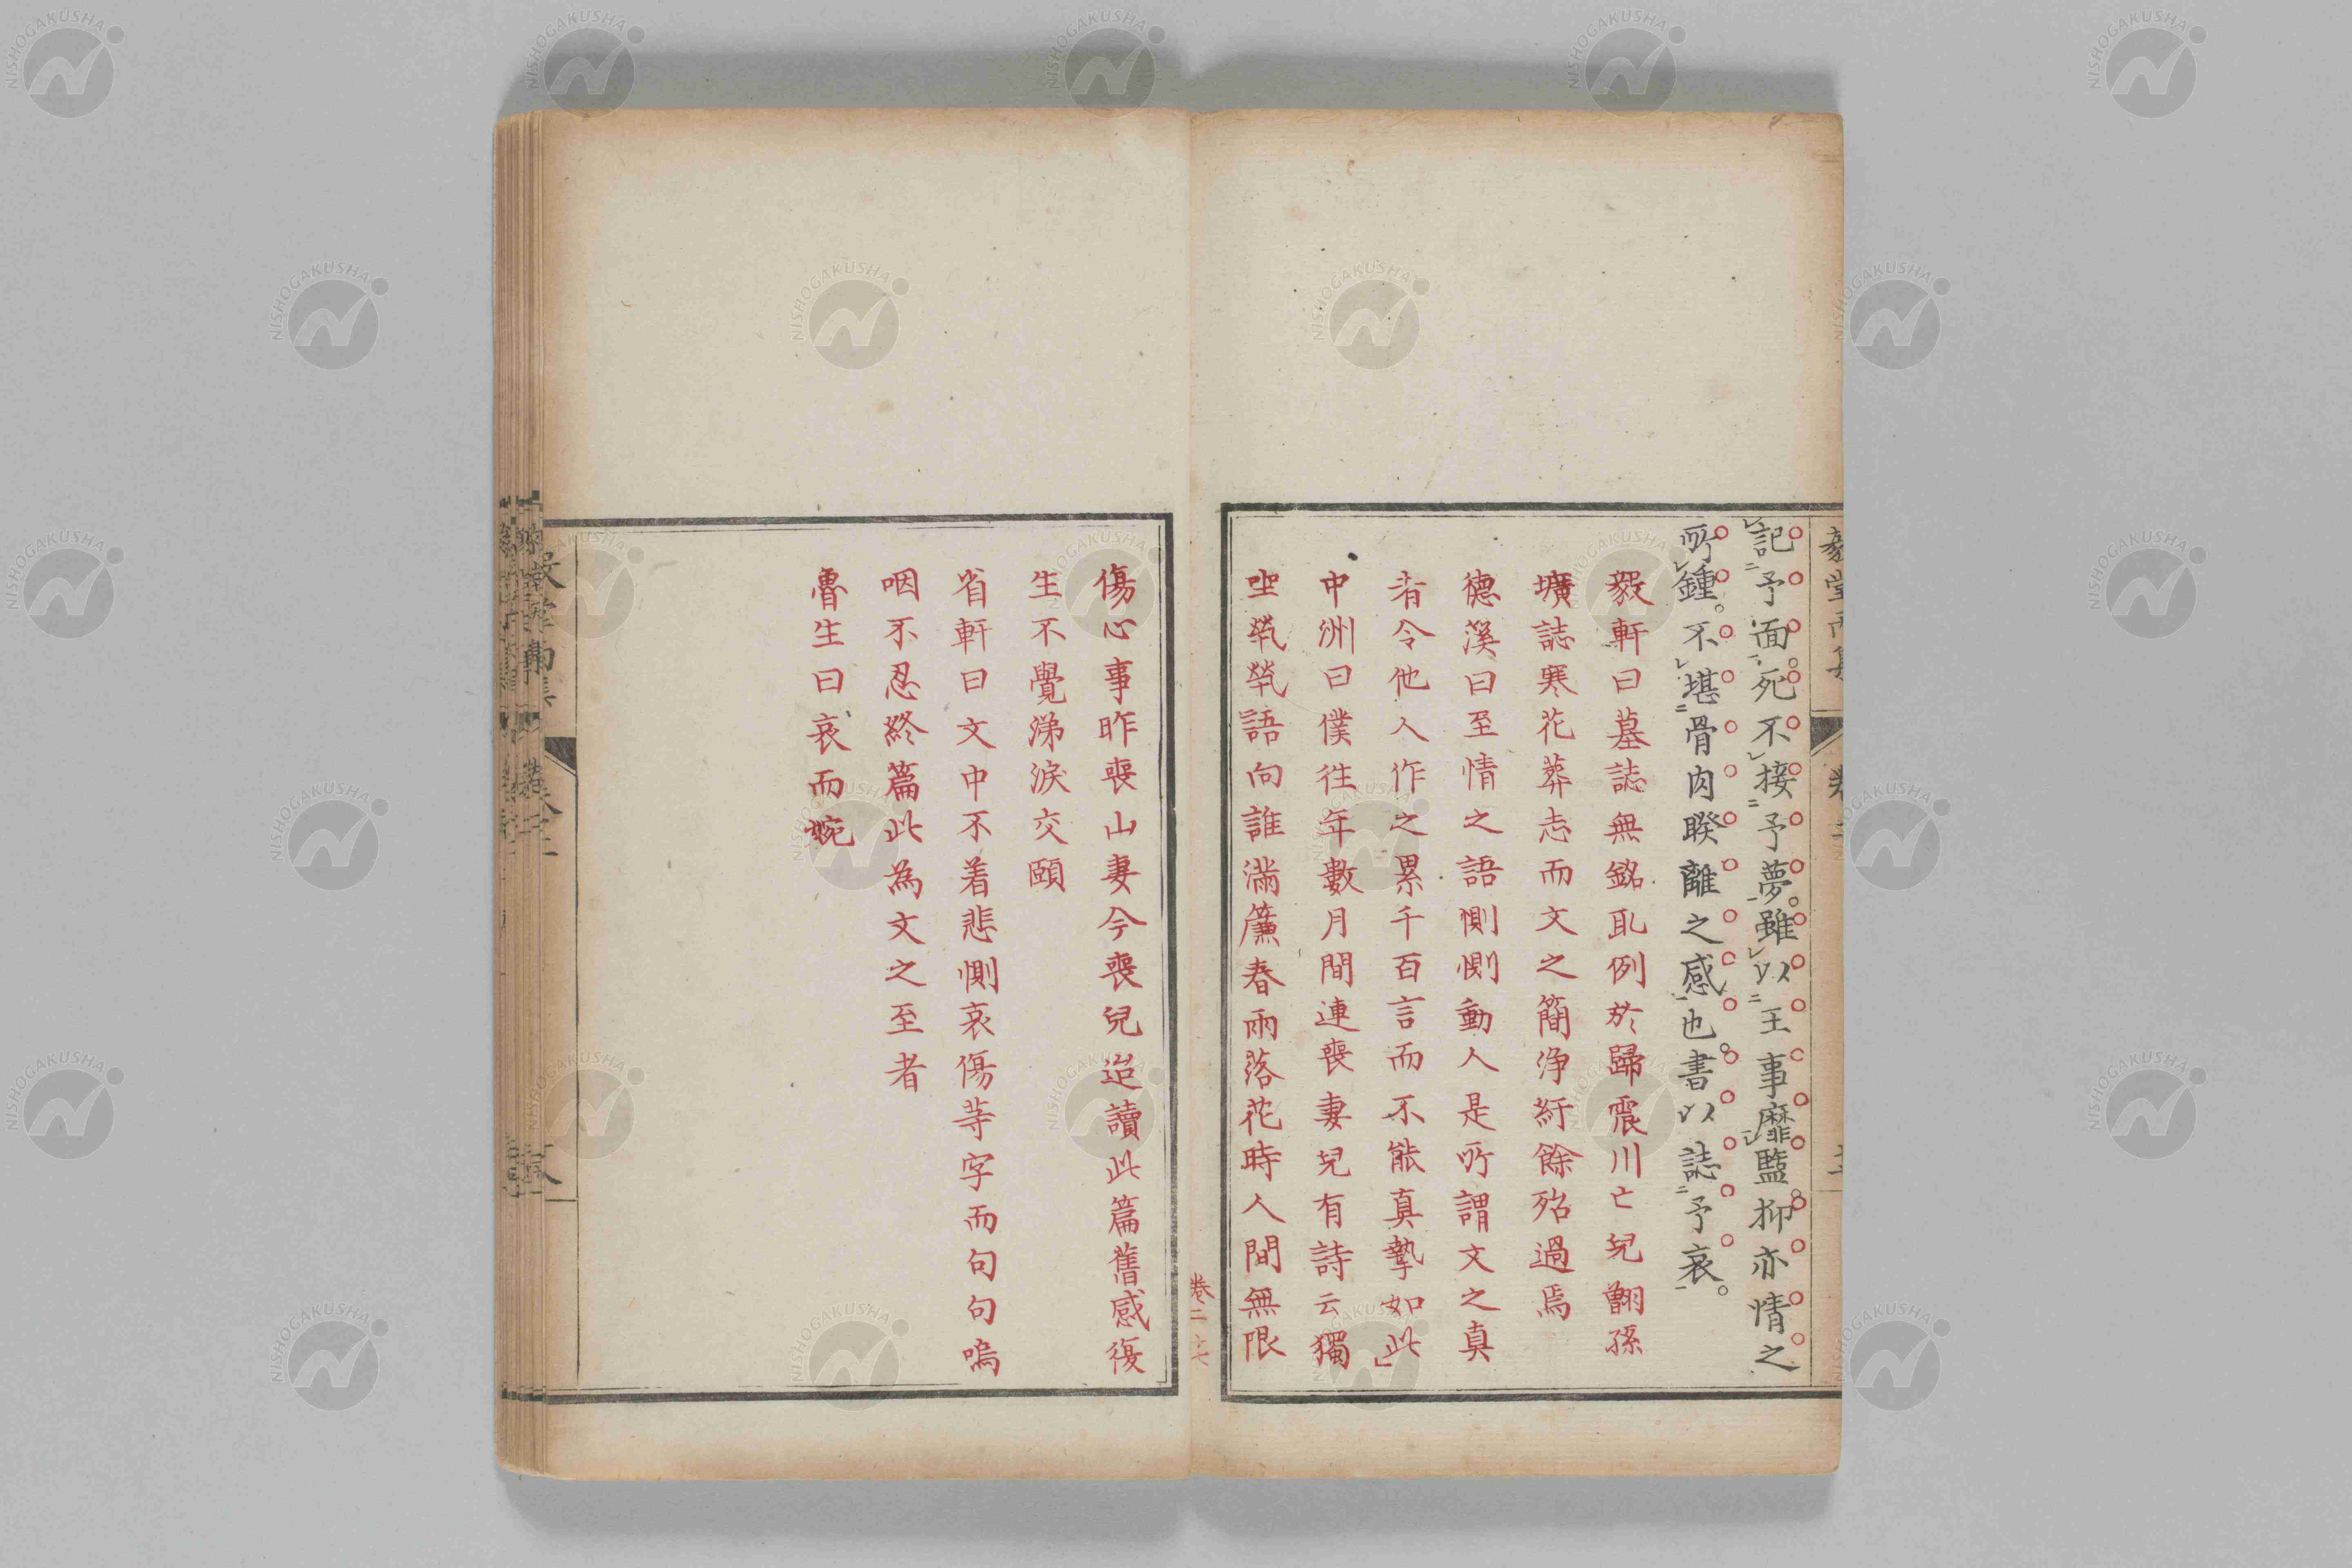 記予面死不接予夢雖以王事靡盬抑亦情之
所鍾不堪骨肉暌離之感也書以誌予哀
毅軒曰墓誌無銘取例於歸震川亡兒䎖孫
壙誌寒花葬志而文之簡淨紆餘殆過焉
德溪曰至情之語惻惻動人是所謂文之真
者令他人作之累千百言而不能真摯如此
中洲曰僕往年數月間連喪妻兒有詩云獨
坐煢煢語向誰滿簾春雨落花時人間無限
卷二
傷心事昨喪山妻今喪兒迨讀此篇舊感復
生不覺涕淚交頤
省軒曰文中不着悲惻哀傷等字而句句嗚
咽不忍終篇此為文之至者
魯生曰哀而婉
NISHOGAKUSHA